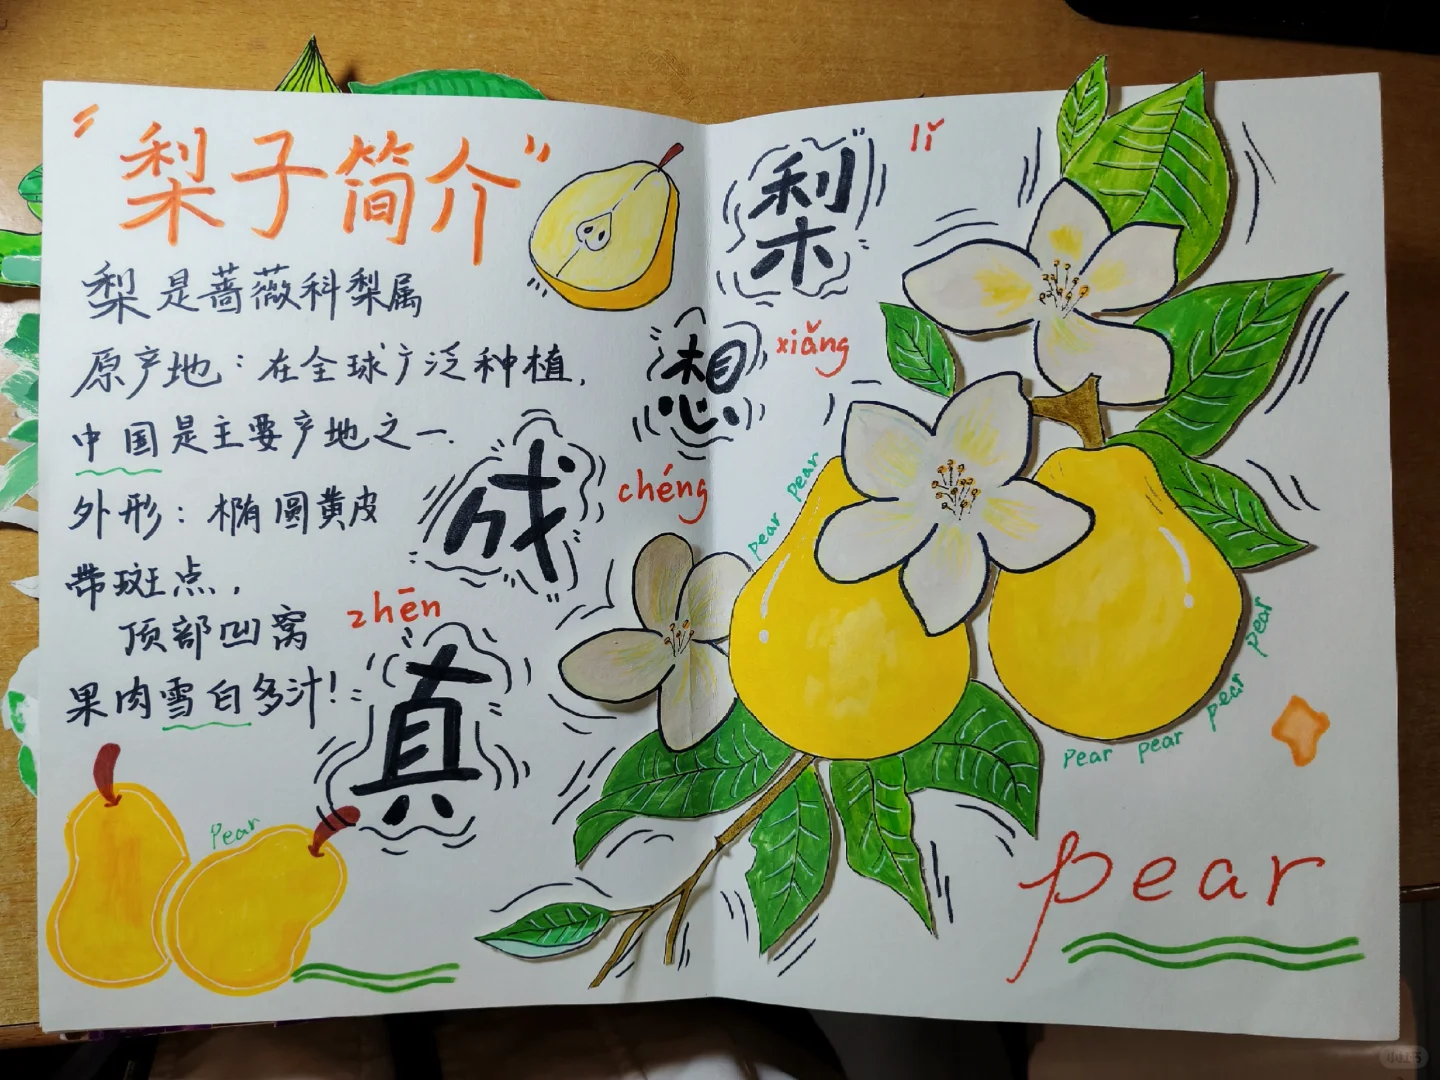 "梨子简介"
梨是蔷薇科梨属
原产地：在全球广泛种植，
中国是主要产地之一.
外形：椭圆黄皮
带斑点，
顶部凹窝
果肉雪白多汁！
pear
梨
lǐ
想
xiǎng
成
chéng
真
zhēn
pear
pear
pear
pear
pear
pear
pear
小红书